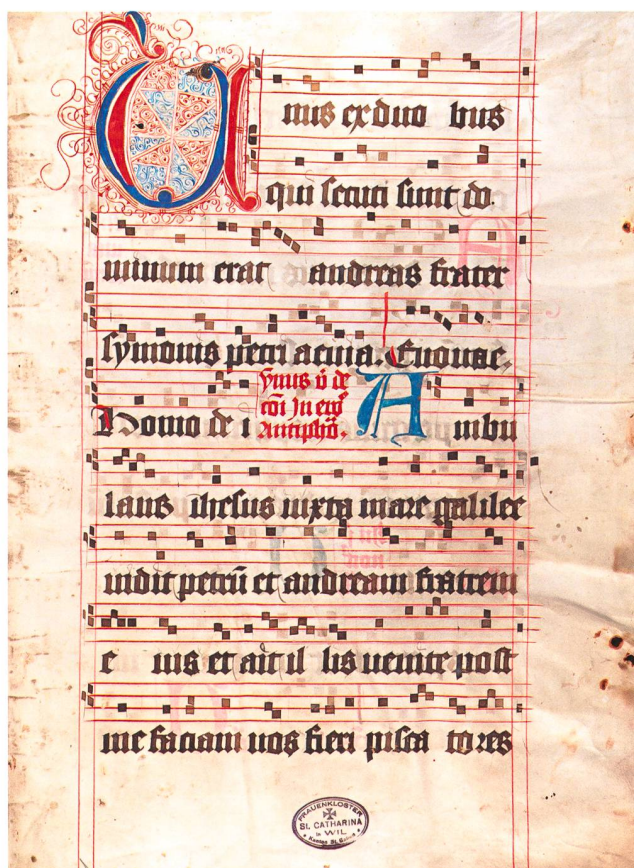 Unus ex duo bus
qui secuti sunt do.
minum erat andreas frater
symonis petri alleluia. Euouae.
Homo de i
Ambu
lans ihesus iuxta mare galilee
uidit petrū et andream fratrem
e ius et ait il lis uenite post
me faciam uos fieri pisca tores
FRAUENKLOSTER
ST. CATHARINA
in WIL
Kanton St. Gallen